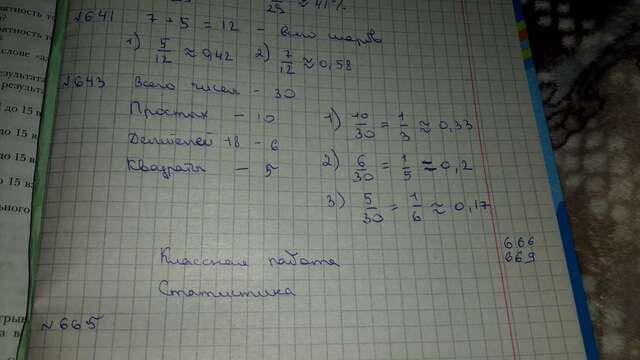 25 ≈ 41%
№641 7 + 5 = 12 - всего шаров
1) 5/12 ≈ 0,42 2) 7/12 ≈ 0,58
№643 Всего чисел - 30
Простых - 10 1) 10/30 = 1/3 ≈ 0,33
Делителей 18 - 6
Квадраты - 5 2) 6/30 = 1/5 ≈ 0,2
3) 5/30 = 1/6 ≈ 0,17
666
Классная работа 669
Статистика
№665